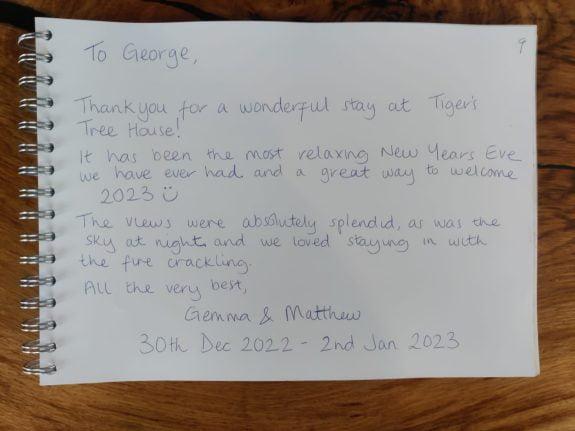 9
To George,
Thank you for a wonderful stay at Tiger's
Tree House!
It has been the most relaxing New Years Eve
we have ever had and a great way to welcome
2023 ☺
The views were absolutely splendid, as was the
sky at night and we loved staying in with
the fire crackling.
All the very best,
Gemma & Matthew
30th Dec 2022 - 2nd Jan 2023